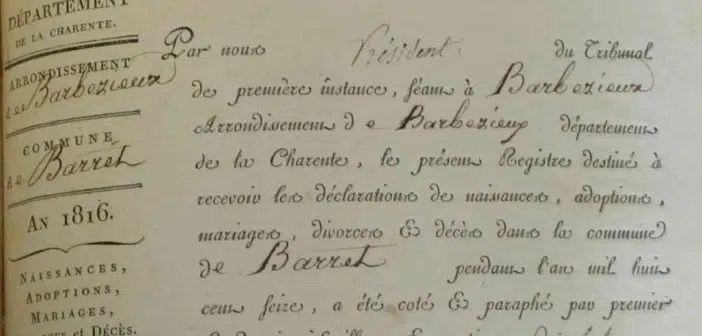 DÉPARTEMENT
DE LA CHARENTE.
ARRONDISSEMENT
de Barbezieux
COMMUNE
de Barret
AN 1816.
NAISSANCES,
ADOPTIONS,
MARIAGES,
et Décès.
Par nous Président du Tribunal
de première instance, séant à Barbezieux
Arrondissement de Barbezieux département
de la Charente, le présent Registre destiné à
recevoir les déclarations de naissances, adoptions,
mariages, divorces & décès dans la commune
de Barret pendant l'an mil huit
cent seize, a été coté & paraphé par premier